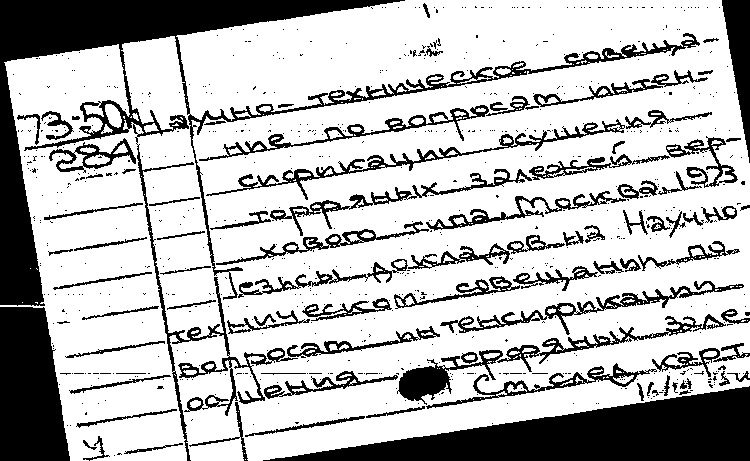 73-50к Научно-техническое совеща-
284
ние по вопросам интен-
сификации осушения
торфяных залежей вер-
хового типа. Москва. 1973.
Тезисы докладов на Научно-
техническом совещании по
вопросам интенсификации
осушения торфяных зале.
См. след карт
ч